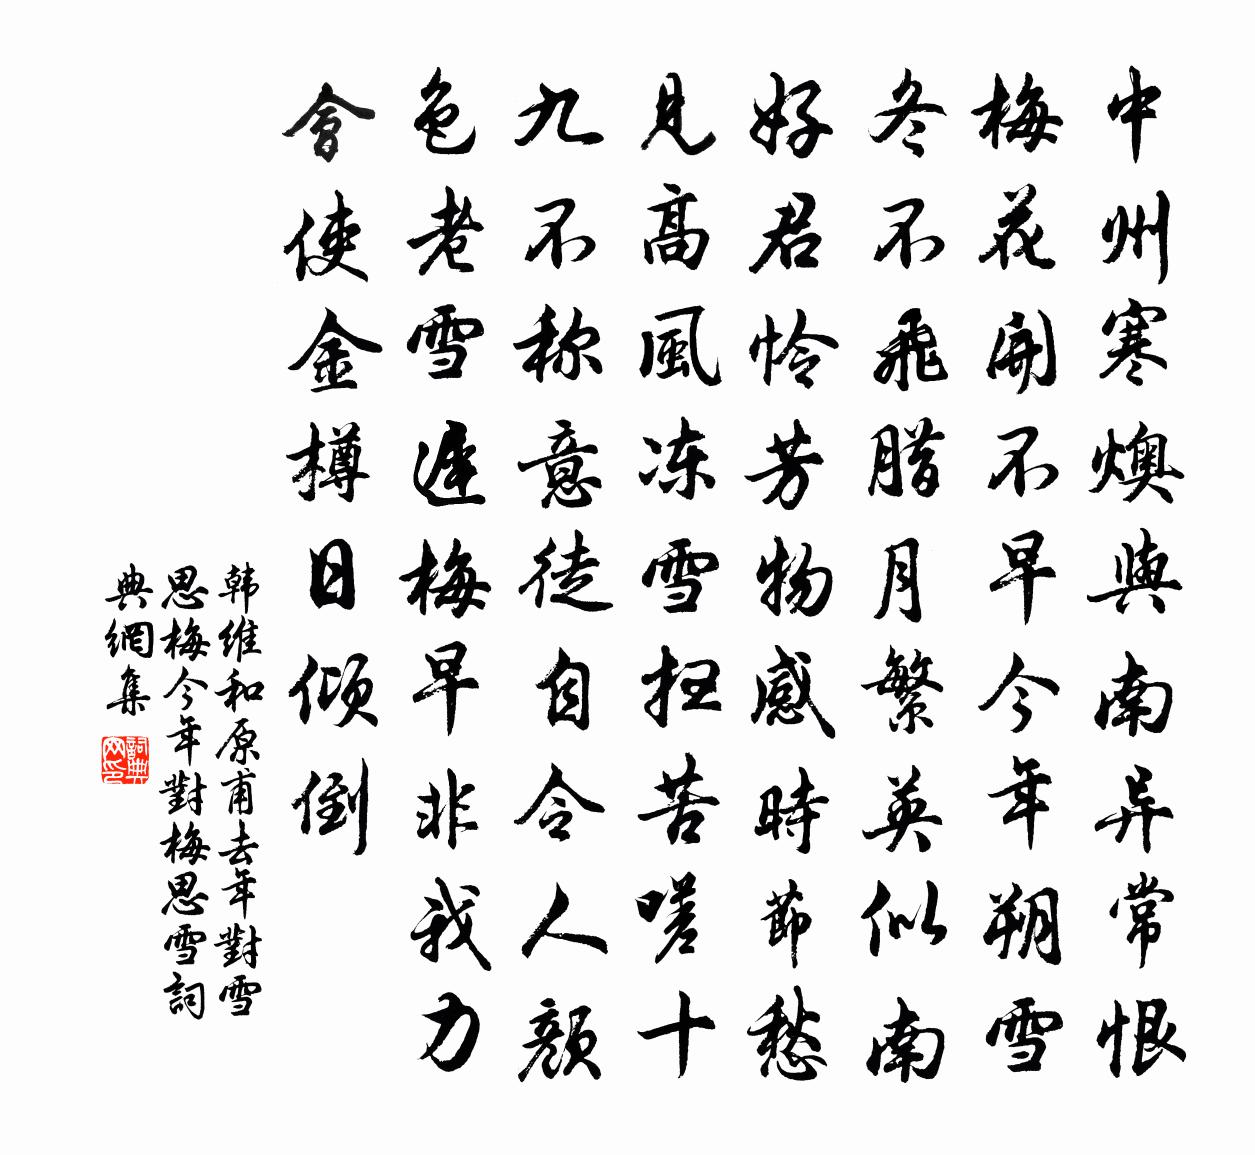 中州寒燠與南异常恨
梅花開不早今年朔雪
冬不飛腊月繁英似南
好君怜芳物感時節愁
見高風冻雪抂苦嗟十
九不称意徒自令人顔
色老雪遲梅早非我力
會使金樽日傾倒
韩維和原甫去年對雪
思梅今年對梅思雪詞
典網集
詞典
网印